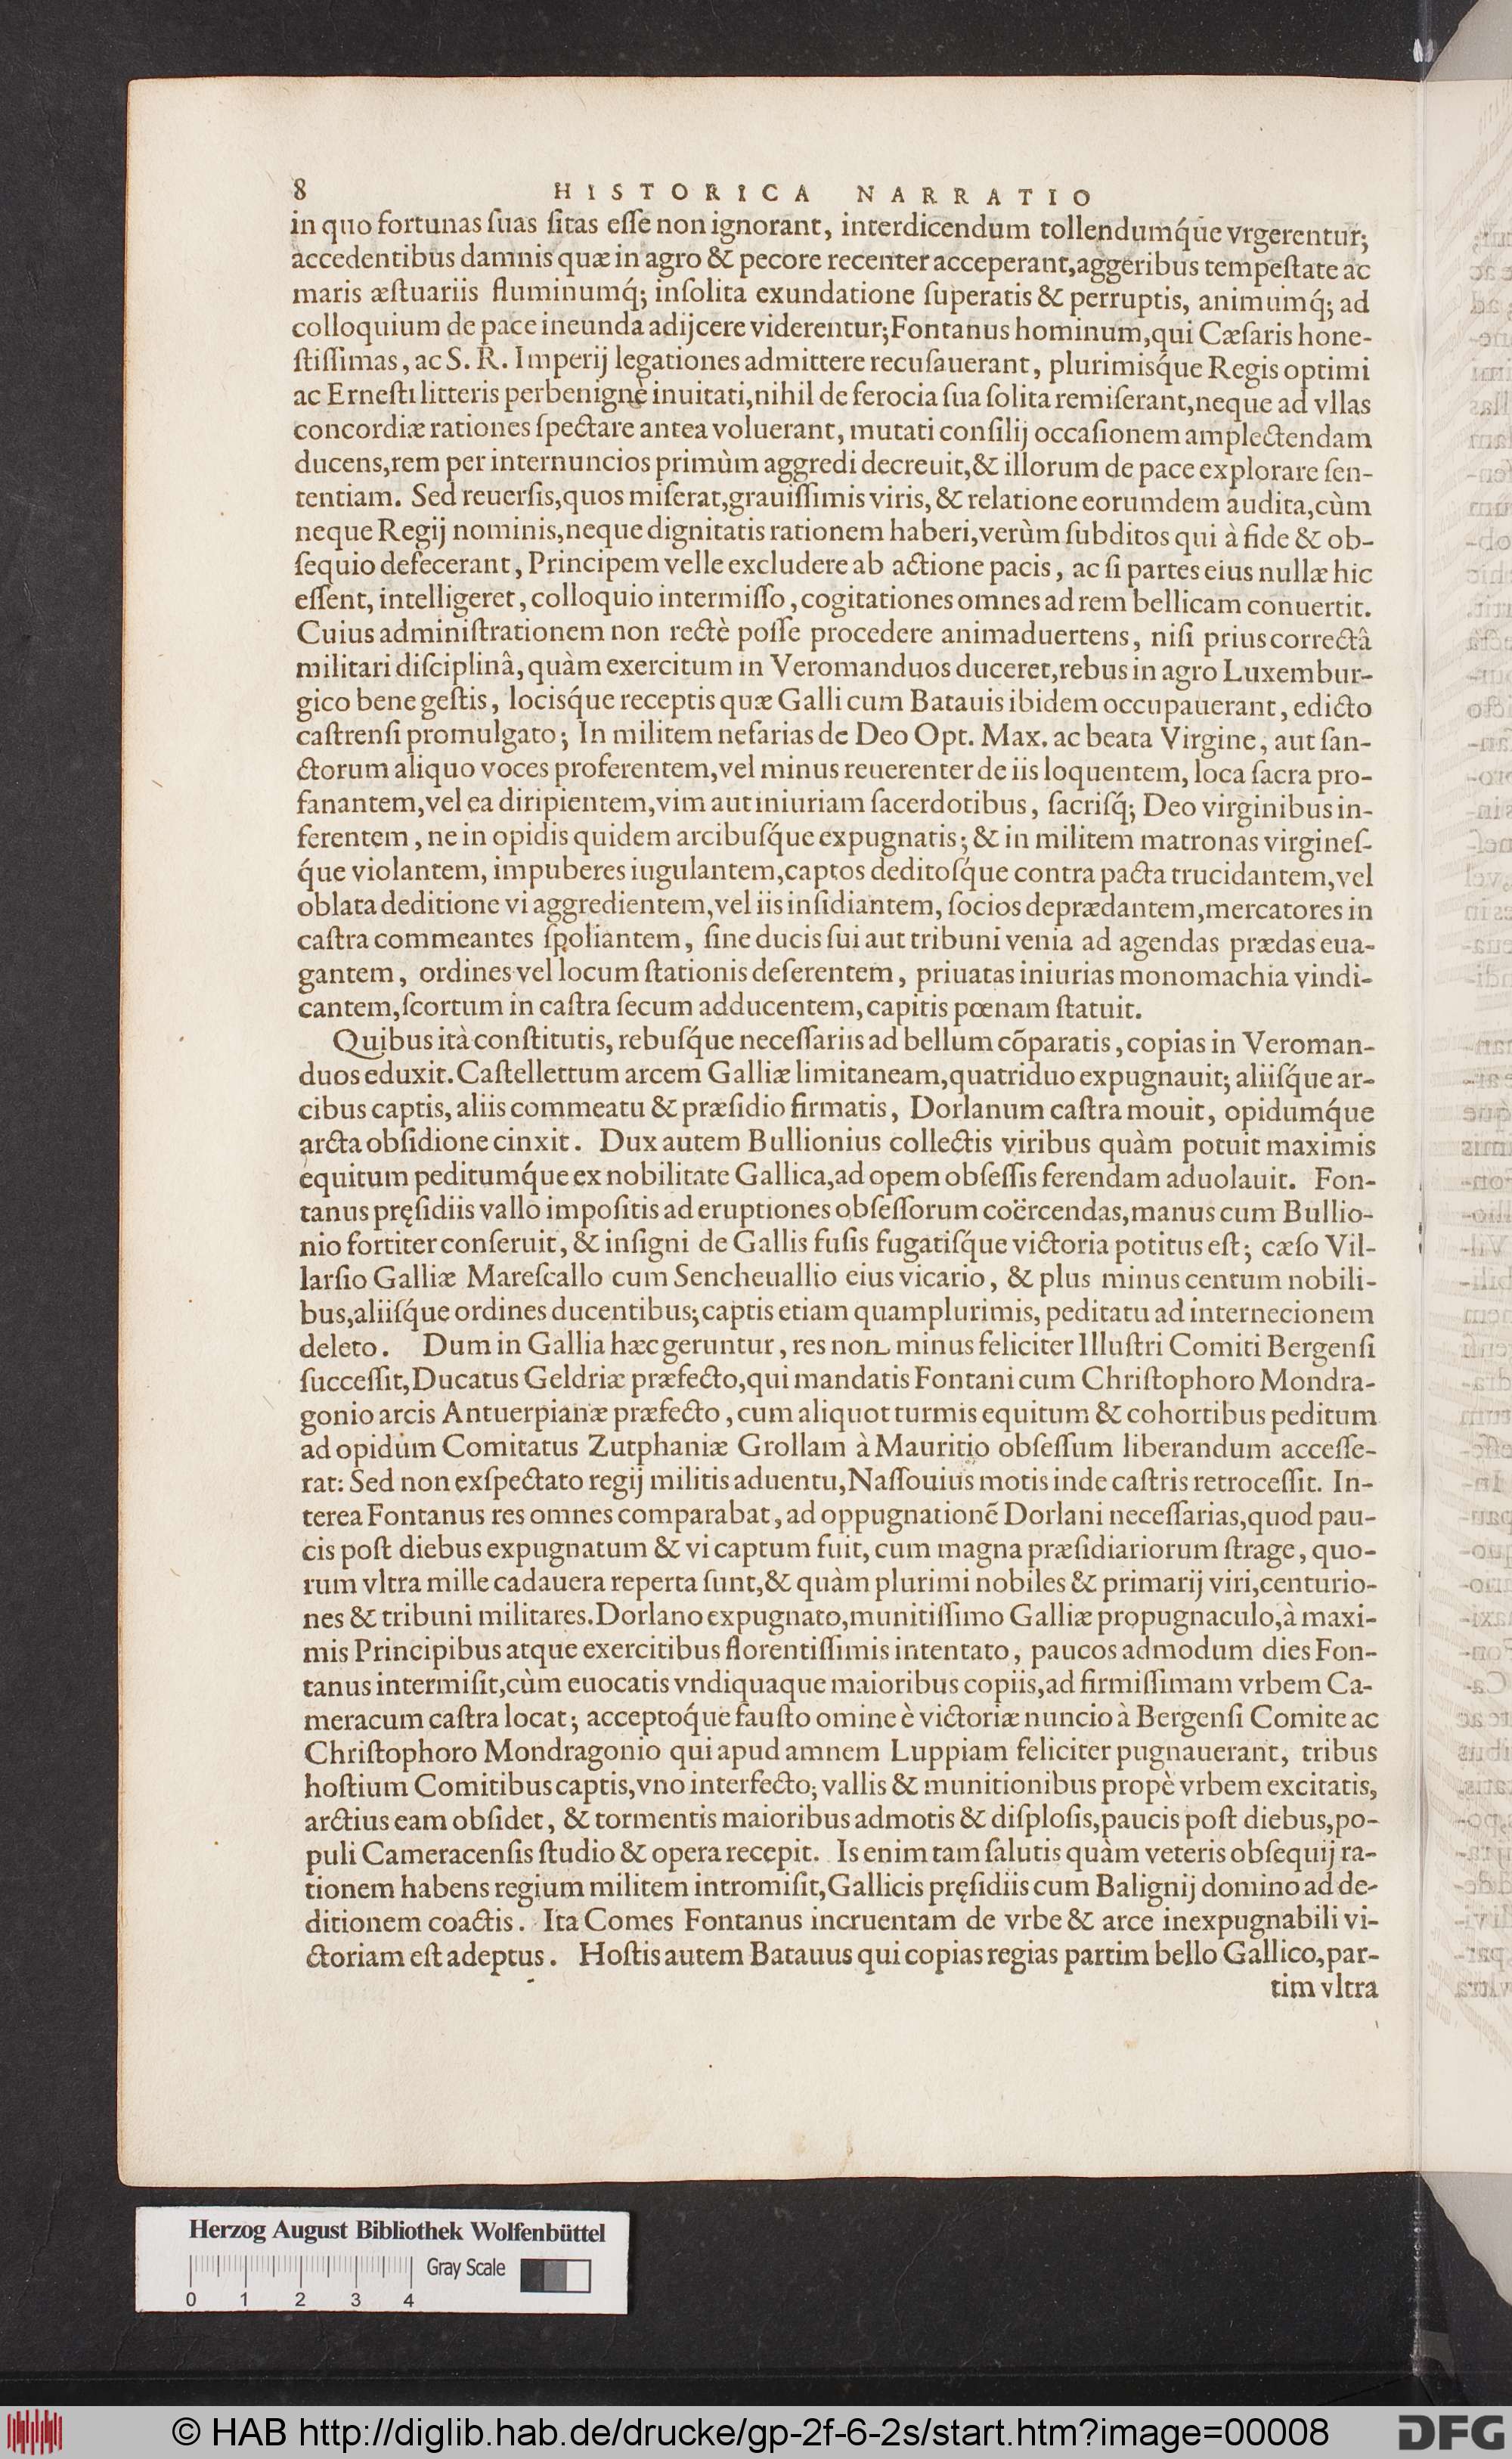 8 HISTORICA NARRATIO
in quo fortunas ſuas ſitas eſſe non ignorant, interdicendum tollendumq́ue vrgerentur;
accedentibus damnis quæ in agro & pecore recenter acceperant, aggeribus tempeſtate ac
maris æſtuariis fluminumq́; inſolita exundatione ſuperatis & perruptis, animumq́; ad
colloquium de pace ineunda adijcere viderentur; Fontanus hominum, qui Cæſaris hone-
ſtiſſimas, ac S. R. Imperij legationes admittere recuſauerant, plurimisq́ue Regis optimi
ac Erneſti litteris perbenignè inuitati, nihil de ferocia ſua ſolita remiſerant, neque ad vllas
concordiæ rationes ſpectare antea voluerant, mutati conſilij occaſionem amplectendam
ducens, rem per internuncios primùm aggredi decreuit, & illorum de pace explorare ſen-
tentiam. Sed reuerſis, quos miſerat, grauiſſimis viris, & relatione eorumdem audita, cùm
neque Regij nominis, neque dignitatis rationem haberi, verùm ſubditos qui à fide & ob-
ſequio defecerant, Principem velle excludere ab actione pacis, ac ſi partes eius nullæ hic
eſſent, intelligeret, colloquio intermiſſo, cogitationes omnes ad rem bellicam conuertit.
Cuius adminiſtrationem non rectè poſſe procedere animaduertens, niſi prius correctâ
militari diſciplinâ, quàm exercitum in Veromanduos duceret, rebus in agro Luxembur-
gico bene geſtis, locisq́ue receptis quæ Galli cum Batauis ibidem occupauerant, edicto
caſtrenſi promulgato; In militem nefarias de Deo Opt. Max. ac beata Virgine, aut ſan-
ctorum aliquo voces proferentem, vel minus reuerenter de iis loquentem, loca ſacra pro-
fanantem, vel ea diripientem, vim aut iniuriam ſacerdotibus, ſacriſq́; Deo virginibus in-
ferentem, ne in opidis quidem arcibuſq́ue expugnatis; & in militem matronas virgineſ-
q́ue violantem, impuberes iugulantem, captos deditoſq́ue contra pacta trucidantem, vel
oblata deditione vi aggredientem, vel iis inſidiantem, ſocios deprædantem, mercatores in
caſtra commeantes ſpoliantem, ſine ducis ſui aut tribuni venia ad agendas prædas eua-
gantem, ordines vel locum ſtationis deſerentem, priuatas iniurias monomachia vindi-
cantem, ſcortum in caſtra ſecum adducentem, capitis pœnam ſtatuit.
Quibus ità conſtitutis, rebuſq́ue neceſſariis ad bellum cõparatis, copias in Veroman-
duos eduxit. Caſtellettum arcem Galliæ limitaneam, quatriduo expugnauit; aliiſq́ue ar-
cibus captis, aliis commeatu & præſidio firmatis, Dorlanum caſtra mouit, opidumq́ue
arcta obſidione cinxit. Dux autem Bullionius collectis viribus quàm potuit maximis
equitum peditumq́ue ex nobilitate Gallica, ad opem obſeſſis ferendam aduolauit. Fon-
tanus pręſidiis vallo impoſitis ad eruptiones obſeſſorum coërcendas, manus cum Bullio-
nio fortiter conſeruit, & inſigni de Gallis fuſis fugatiſq́ue victoria potitus eſt; cæſo Vil-
larſio Galliæ Mareſcallo cum Sencheuallio eius vicario, & plus minus centum nobili-
bus, aliiſq́ue ordines ducentibus; captis etiam quamplurimis, peditatu ad internecionem
deleto. Dum in Gallia hæc geruntur, res non minus feliciter Illuſtri Comiti Bergenſi
ſucceſſit, Ducatus Geldriæ præfecto, qui mandatis Fontani cum Chriſtophoro Mondra-
gonio arcis Antuerpianæ præfecto, cum aliquot turmis equitum & cohortibus peditum
ad opidum Comitatus Zutphaniæ Grollam à Mauritio obſeſſum liberandum acceſſe-
rat: Sed non exſpectato regij militis aduentu, Naſſouius motis inde caſtris retroceſſit. In-
terea Fontanus res omnes comparabat, ad oppugnationẽ Dorlani neceſſarias, quod pau-
cis poſt diebus expugnatum & vi captum fuit, cum magna præſidiariorum ſtrage, quo-
rum vltra mille cadauera reperta ſunt, & quàm plurimi nobiles & primarij viri, centurio-
nes & tribuni militares. Dorlano expugnato, munitiſſimo Galliæ propugnaculo, à maxi-
mis Principibus atque exercitibus florentiſſimis intentato, paucos admodum dies Fon-
tanus intermiſit, cùm euocatis vndiquaque maioribus copiis, ad firmiſſimam vrbem Ca-
meracum caſtra locat; acceptoq́ue fauſto omine è victoriæ nuncio à Bergenſi Comite ac
Chriſtophoro Mondragonio qui apud amnem Luppiam feliciter pugnauerant, tribus
hoſtium Comitibus captis, vno interfecto; vallis & munitionibus propè vrbem excitatis,
arctius eam obſidet, & tormentis maioribus admotis & diſploſis, paucis poſt diebus, po-
puli Cameracenſis ſtudio & opera recepit. Is enim tam ſalutis quàm veteris obſequij ra-
tionem habens regium militem intromiſit, Gallicis pręſidiis cum Balignij domino ad de-
ditionem coactis. Ita Comes Fontanus incruentam de vrbe & arce inexpugnabili vi-
ctoriam eſt adeptus. Hoſtis autem Batauus qui copias regias partim bello Gallico, par-
tim vltra
Herzog August Bibliothek Wolfenbüttel
Gray Scale
0 1 2 3 4
© HAB http://diglib.hab.de/drucke/gp-2f-6-2s/start.htm?image=00008
DFG